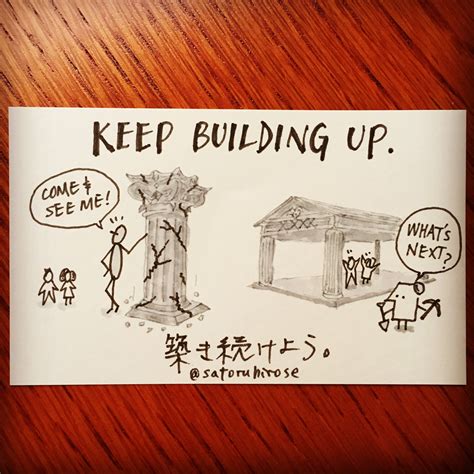 KEEP BUILDING UP.
COME &
SEE ME!
WHAT'S
NEXT?
築き続けよう。
@satoruhirose